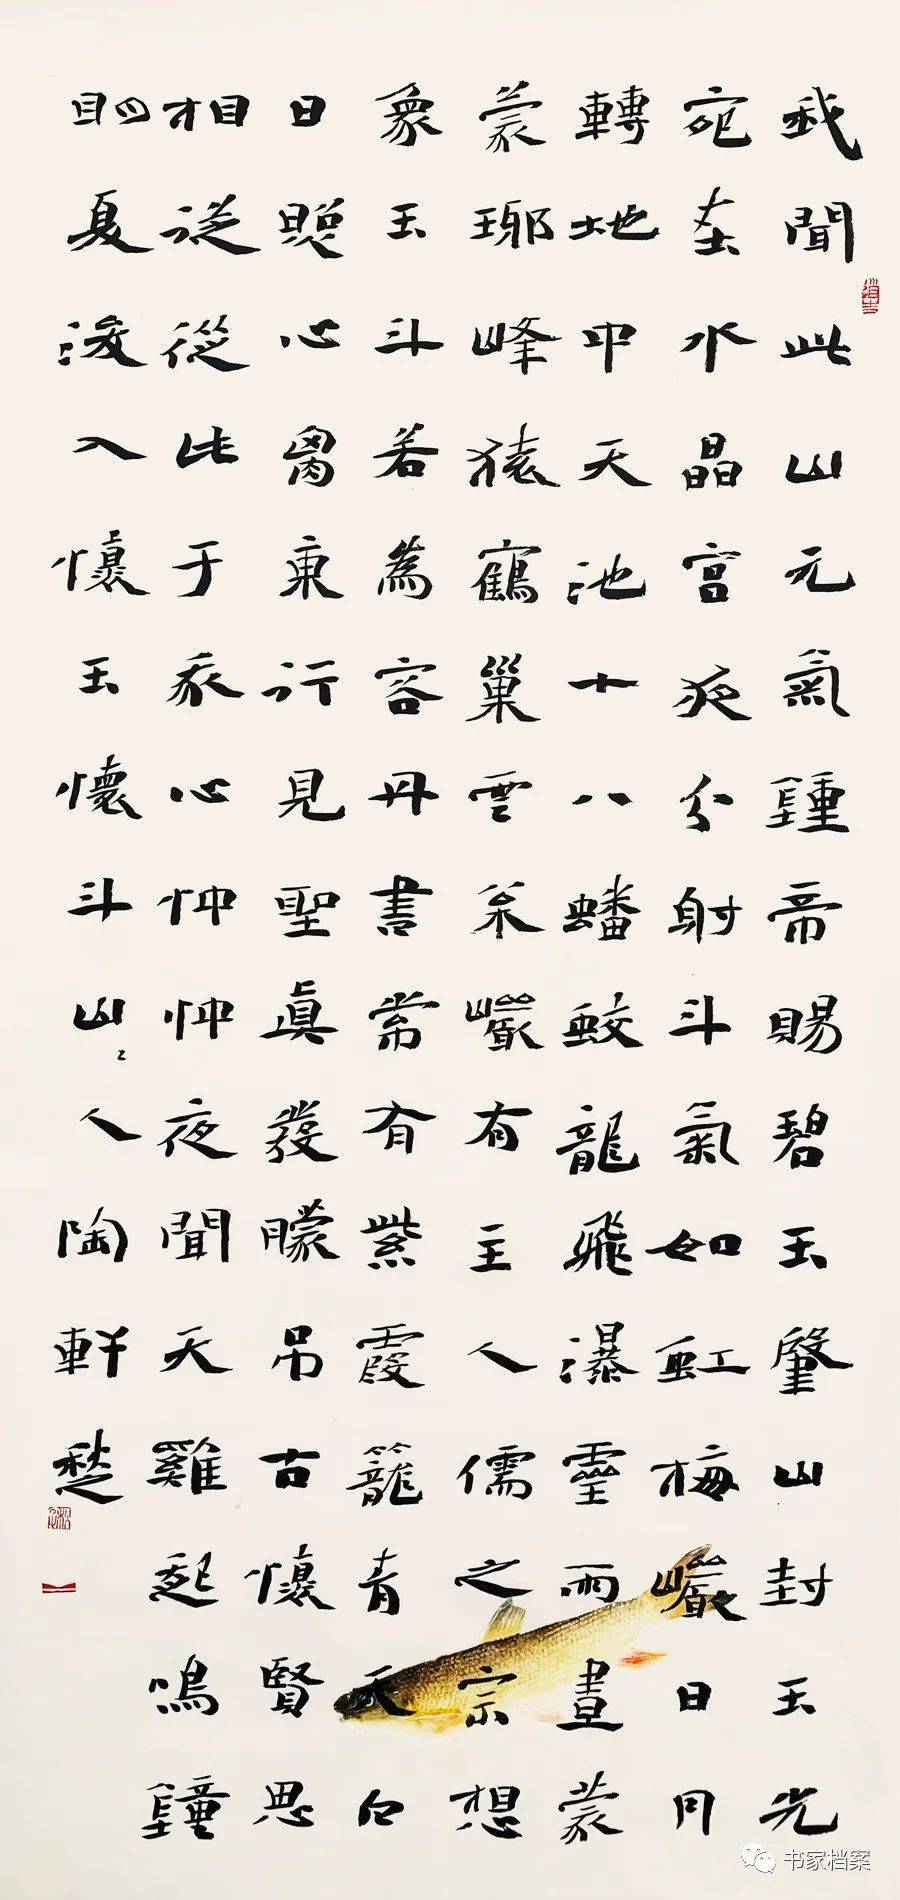 我聞此山元氣鍾帝賜碧玉肇山封玉光
宛在水晶宮夜分射斗氣如虹梅巖日月
轉地中天池十八蟠蛟龍飛瀑靈雨晝蒙
蒙琊峰猿鶴巢雲枀巖有主人儒之宗想
象玉斗若為容丹書常有紫霞籠青天白
日照心胷東行見聖真發朦吊古懷賢思
相從從此于我心忡忡夜聞天雞起鳴鐘
明夏浚入懷玉懷斗山々人陶軒
书家档案